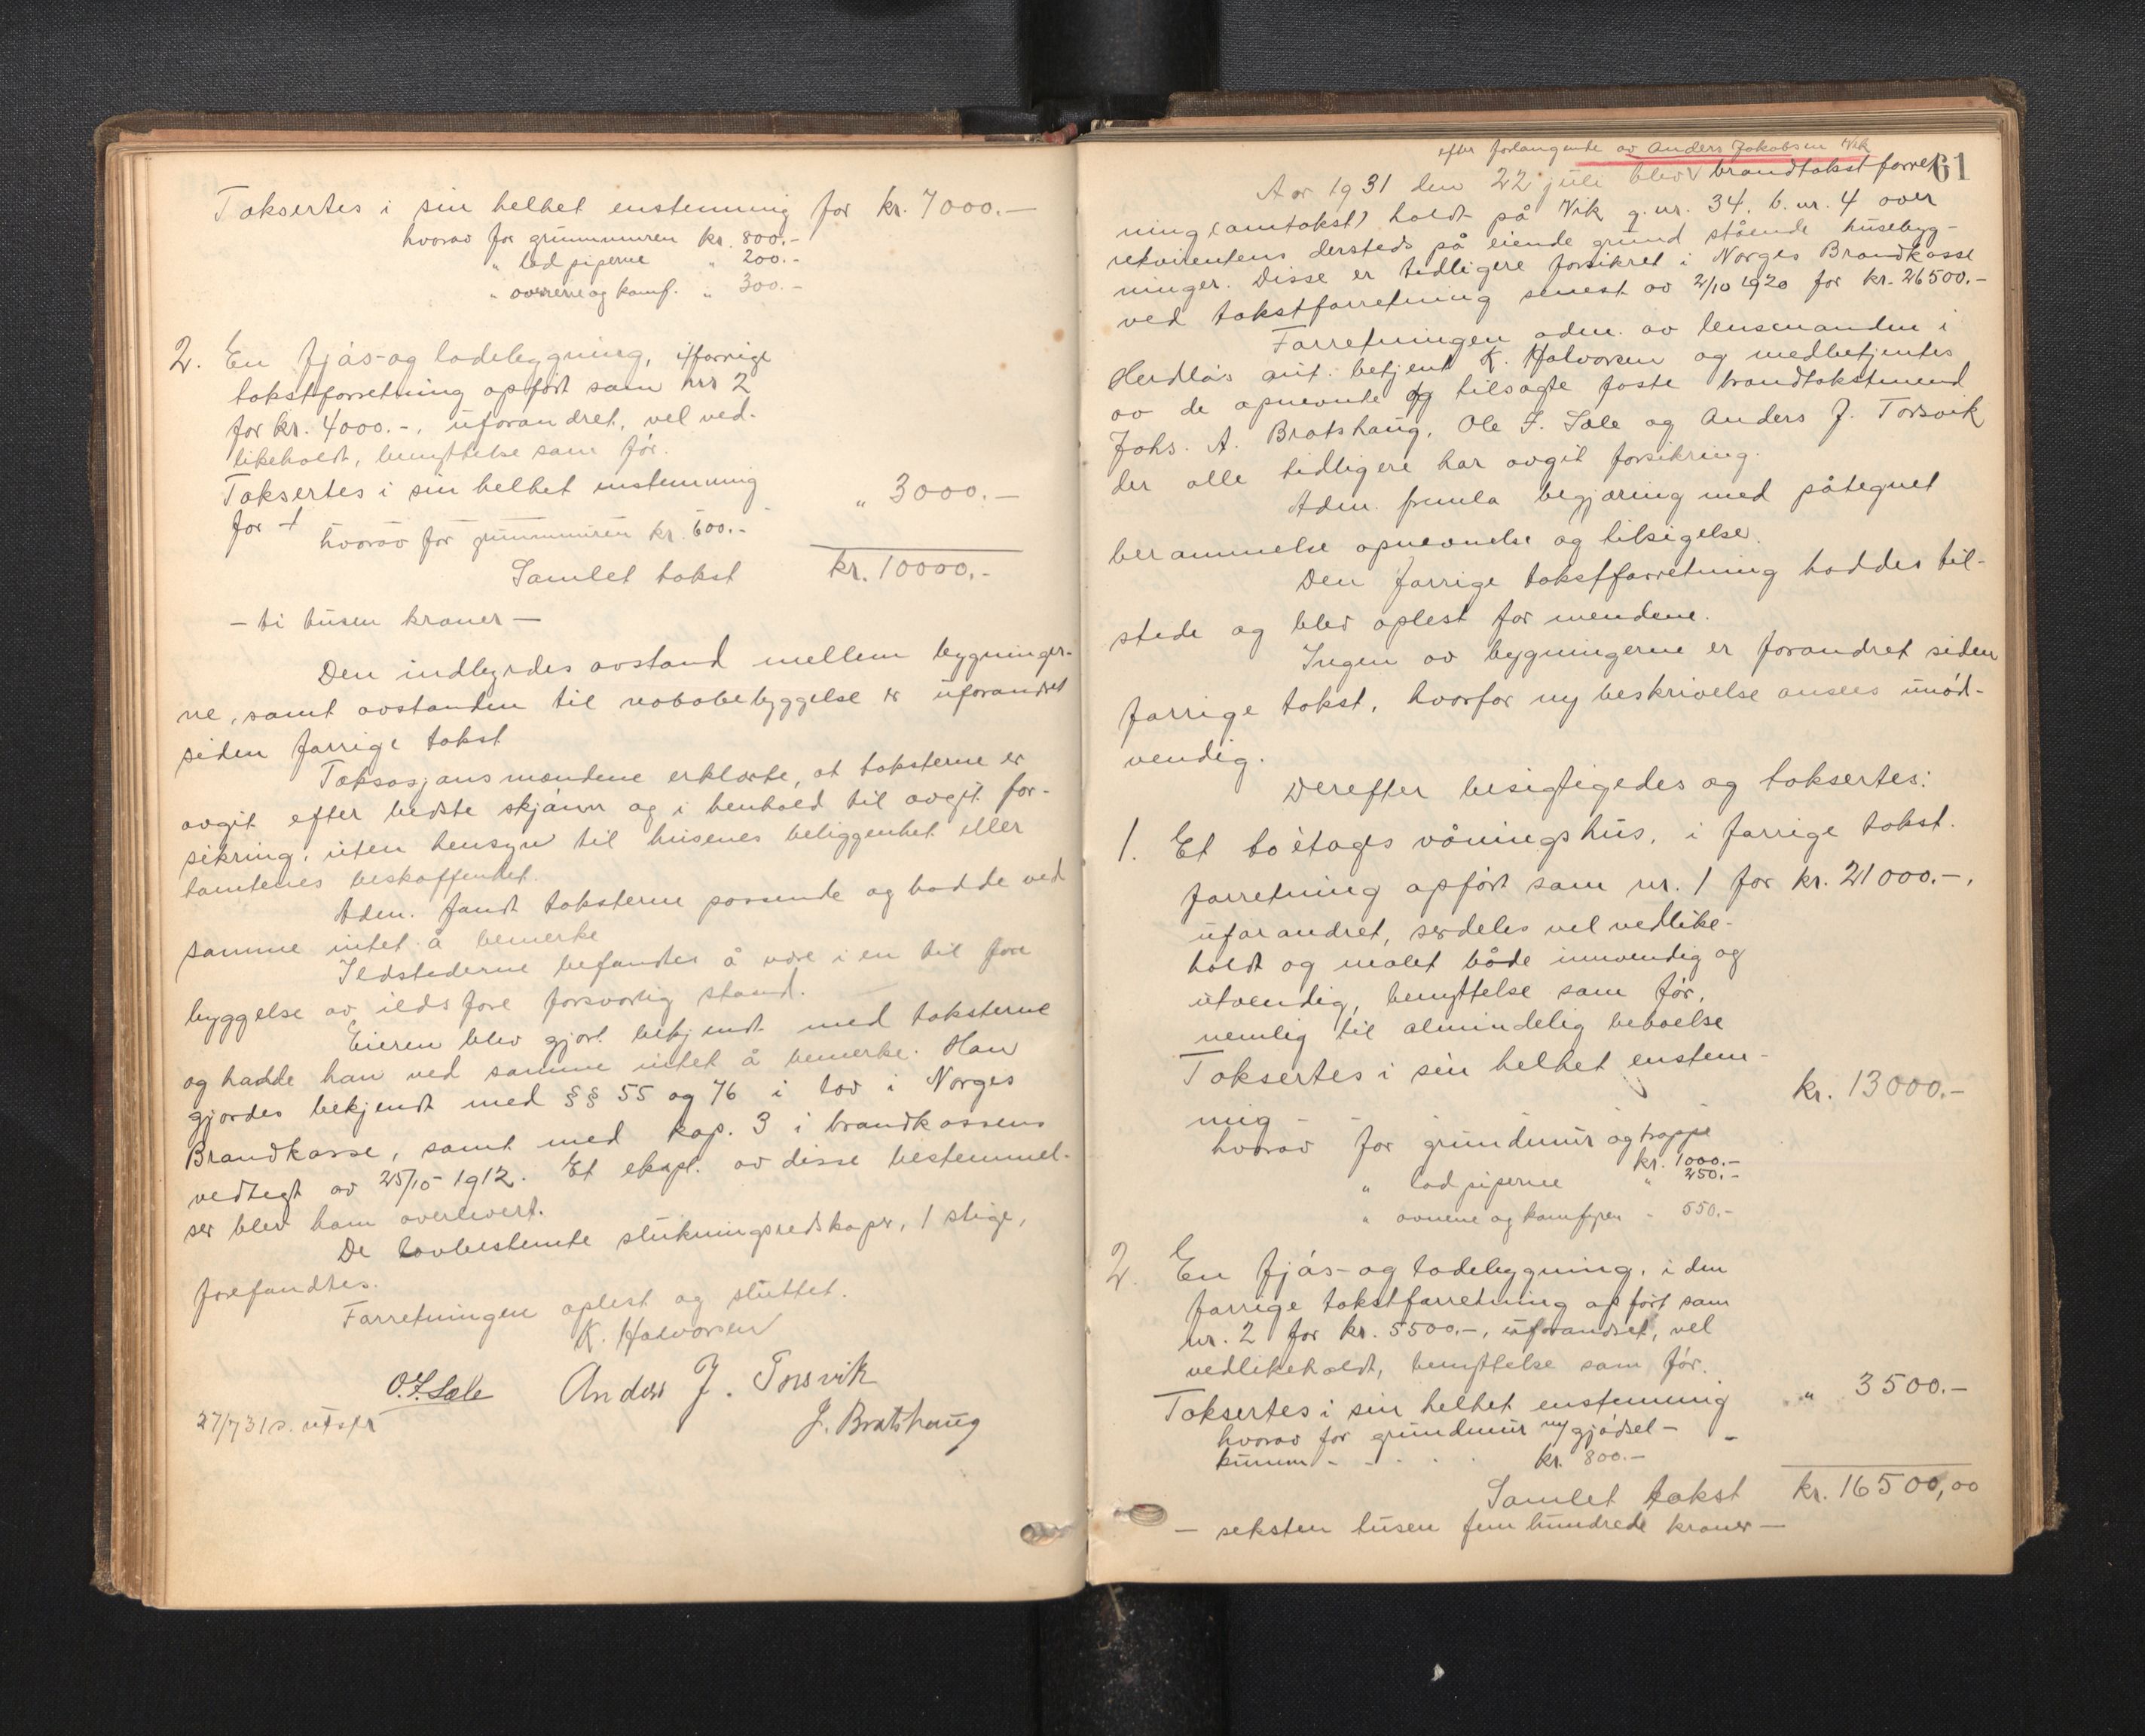 Taksertes i sin helhet enstemmig for kr. 7000.-
hvorav for grunnmuren kr. 800.-
" lad piperne " 200.-
" ovnene og komf. " 300.-
2. En fjøs- og ladebygning, i forrige
takstforretning opført som nr 2
for kr. 4000.-, uforandret, vel ved-
likeholdt, benyttelse som før.
Taksertes i sin helhet enstemmig
for " 3000.-
hvorav for grunnmuren kr. 600.-
Samlet takst kr. 10000.-
- ti tusen kroner -
Den indbyrdes avstand mellem bygninger-
ne, samt avstanden til nabobebyggelse er uforandret
siden forrige takst
Taksasjonsmændene erklærte, at taksterne er
avgit efter bedste skjønn og i henhold til avgit for-
sikring, uten hensyn til husenes beliggenhet eller
tomtenes beskaffenhet.
Adm. fandt taksterne passende og hadde ved
samme intet å bemerke
Ildstederne befandtes å være i en til fore
byggelse av ildsfare forsvarlig stand.
Eieren blev gjort bekjendt med taksterne
og hadde han ved samme intet å bemerke. Han
gjordes bekjendt med §§ 55 og 76 i lov i Norges
Brandkasse, samt med kap. 3 i brandkassens
vedtegt av 25/10-1912. Et ekspl. av disse bestemmel-
ser blev ham overlevert.
De lovbestemte slukningsredskaper, 1 stige,
forefandtes.
Forretningen oplest og sluttet.
K. Halvorsen
O. I. Sæle Anders J. Torsvik
27/7 31 J. Bratshaug
61
efter forlangende av Anders Jakobsen Vik
Aar 1931 den 22 juli blev brandtakstforret
ning (omtakst) holdt på Vik g.nr. 34. b.nr. 4 over
rekvirentens dersteds på eiende grund stående husebyg-
ninger. Disse er tidligere forsikret i Norges Brandkasse
ved takstforretning senest av 2/10 1920 for kr. 26500.-
Forretningen adm. av lensmanden i
Herdla's aut. betjent K. Halvorsen og medbetjentes
av de opnevnte og tilsagte faste brandtakstmend
Johs. A. Bratshaug, Ole I. Sæle og Anders J. Torsvik
der alle tidligere har avgit forsikring.
Adm. fremla begjæring med påtegnet
berammelse opnevnelse og tilsigelse.
Den forrige takstforretning haddes til-
stede og blev oplest for mendene.
Ingen av bygningerne er forandret siden
forrige takst, hvorfor ny beskrivelse ansees unød-
vendig.
Derefter besigtigedes og taksertes:
1. Et toetages våningshus, i forrige takst-
forretning opført som nr. 1 for kr. 21000.-,
uforandret, serdeles vel vedlike-
holdt og malet både innvendig og
utvendig, benyttelse som før,
nemlig til almindelig beboelse
Taksertes i sin helhet enstem-
mig - - kr. 13000.-
hvorav for grundmur og trappe
kr. 1000.-
" lad piperne " 250.-
" ovnene og komfyren - 550.-
2. En fjøs- og ladebygning, i den
forrige takstforretning opført som
nr. 2 for kr. 5500.-, uforandret, vel
vedlikeholdt, benyttelse som før.
Taksertes i sin helhet enstemmig " 3500.-
hvorav for grundmur m/gjødsel-
kumm - kr. 800.-
Samlet takst kr. 16500,00
- seksten tusen fem hundrede kroner -